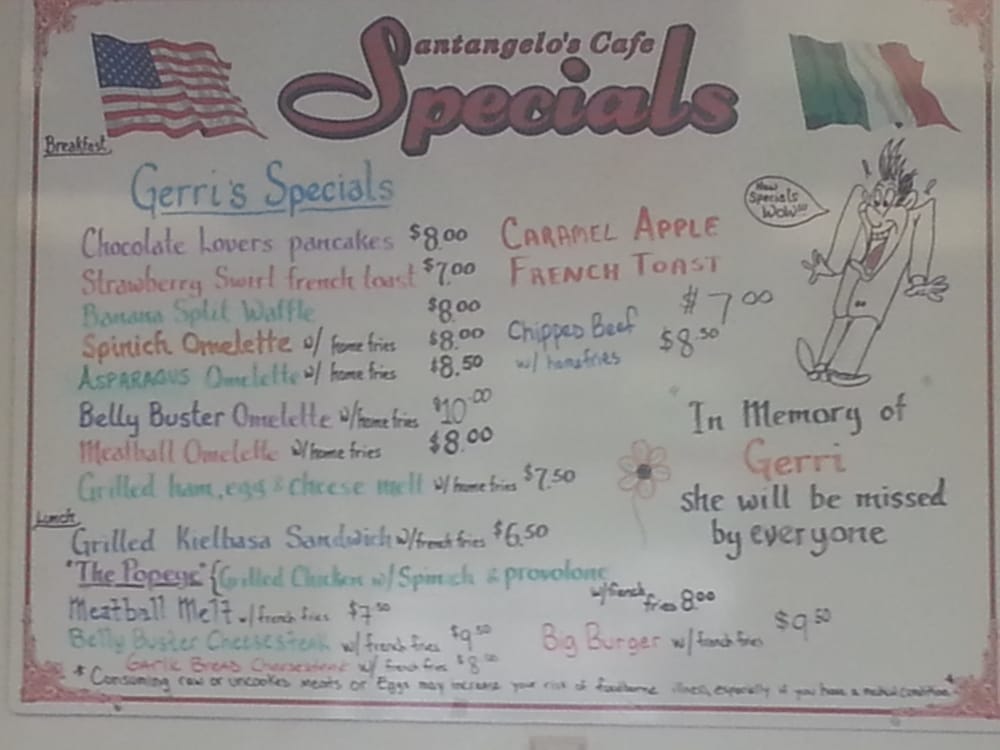 Santangelo's Cafe
Specials
Breakfast
Gerri's Specials
New
Specials
Wow!!!
Chocolate Lovers pancakes $8.00
Strawberry Swirl french toast $7.00
Banana Split Waffle $8.00
Spinich Omelette w/ home fries $8.00
Asparagus Omelette w/ home fries $8.50
Belly Buster Omelette w/home fries $10.00
Meatball Omelette w/home fries $8.00
Grilled ham, egg & cheese melt w/home fries $7.50
Caramel Apple
French Toast
$7.00
Chipped Beef $8.50
w/ homefries
In Memory of
Gerri
she will be missed
by everyone
Lunch
Grilled Kielbasa Sandwich w/french fries $6.50
"The Popeye" {Grilled Chicken w/Spinach & provolone
w/french fries 8.00
Meatball Melt w/french fries $7.50
Belly Buster Cheesesteak w/ french fries $9.50
Big Burger w/ french fries $9.50
Garlic Bread Cheesesteak w/ french fries $8.00
* Consuming raw or uncookes meats or Eggs may increase your risk of foodborne illness, especially if you have a medical condition *